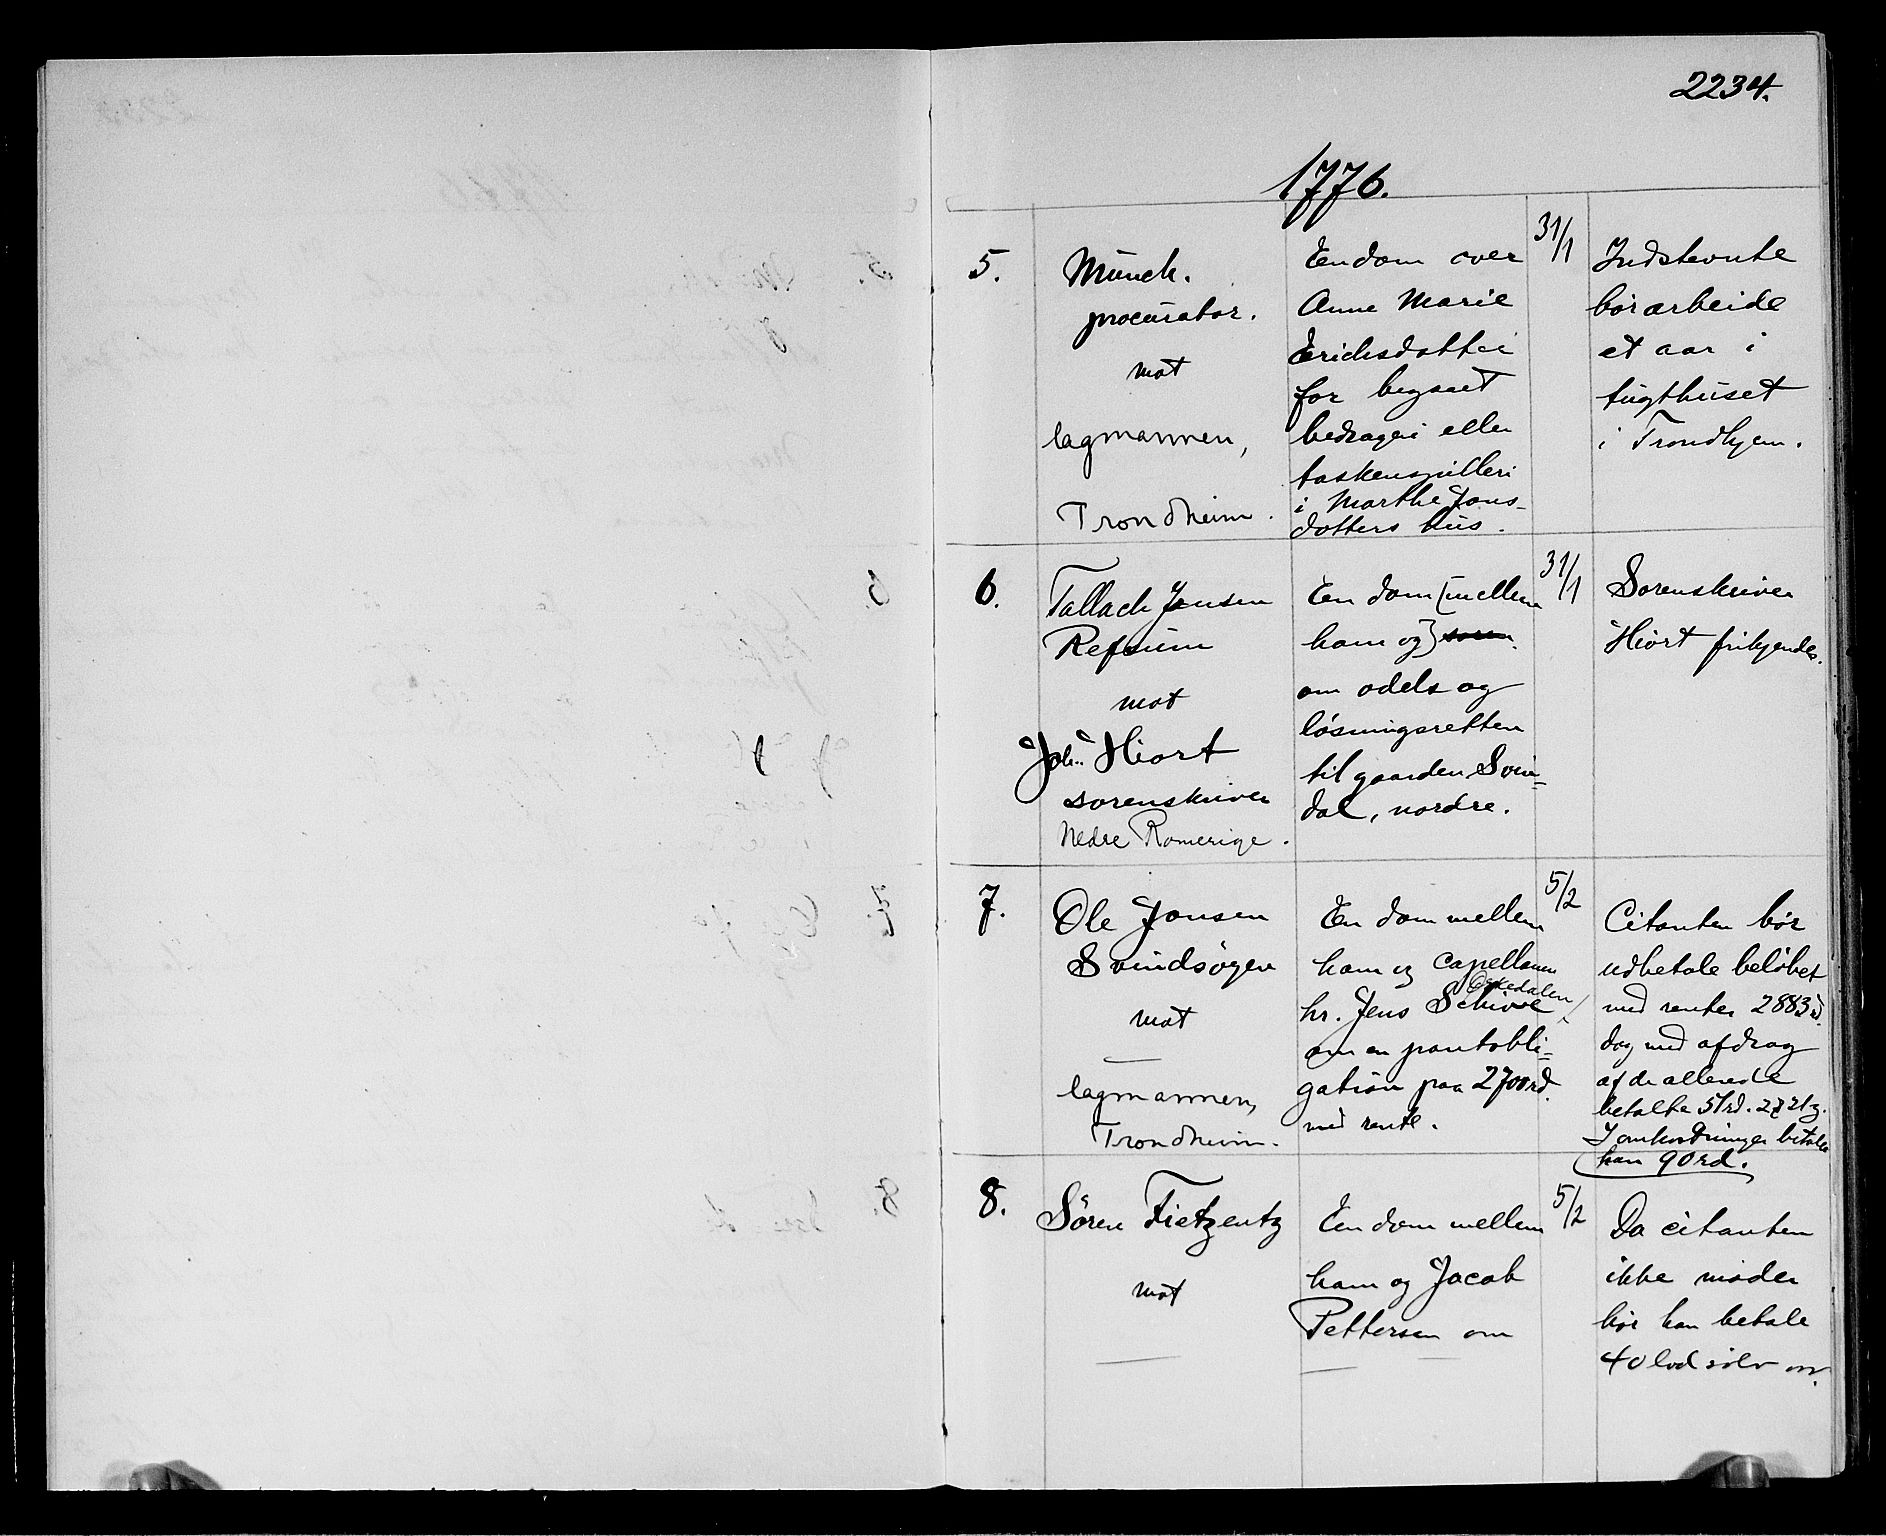 2234.
1776.
5.
Münch.
procurator.
mot
lagmannen,
Trondheim.
En dom over
Anne Marie
Erichsdotter
for begaaet
bedrageri eller
taskenspilleri
i Marthe Jons-
dotters hus.
31/1
Indstevnte
bör arbeide
et aar i
tugthuset
i Trondhjem.
6.
Tallach Jensen
Refsum
mot
Joh. Hiort
sorenskriver
Nedre Romerige.
En dom [mellem
ham og] soren
om odels og
løsningsretten
til gaarden Svin-
dal, nordre.
31/1
Sorenskriver
Hiort frikjendes.
7.
Ole Jonsen
Svindsögen
mot
—
lagmannen,
Trondheim.
En dom mellem
ham og capellanen
Örkedalen
hr. Jens Schive
om en pantobli-
gation paa 2700 rd.
med rente.
5/2
Citanten bør
udbetale beløbet
med renter 2883 rd.
dog med afdrag
af de allerede
betalte 51 rd. 2 21 ʒ.
I omkostninger betaler
han 90 rd.
8.
Sören Fietzentz
mot
—
En dom mellem
ham og Jacob
Pettersen om
— —
5/2
Da citanten
ikke møder
bör han betale
40 lod sölv m.